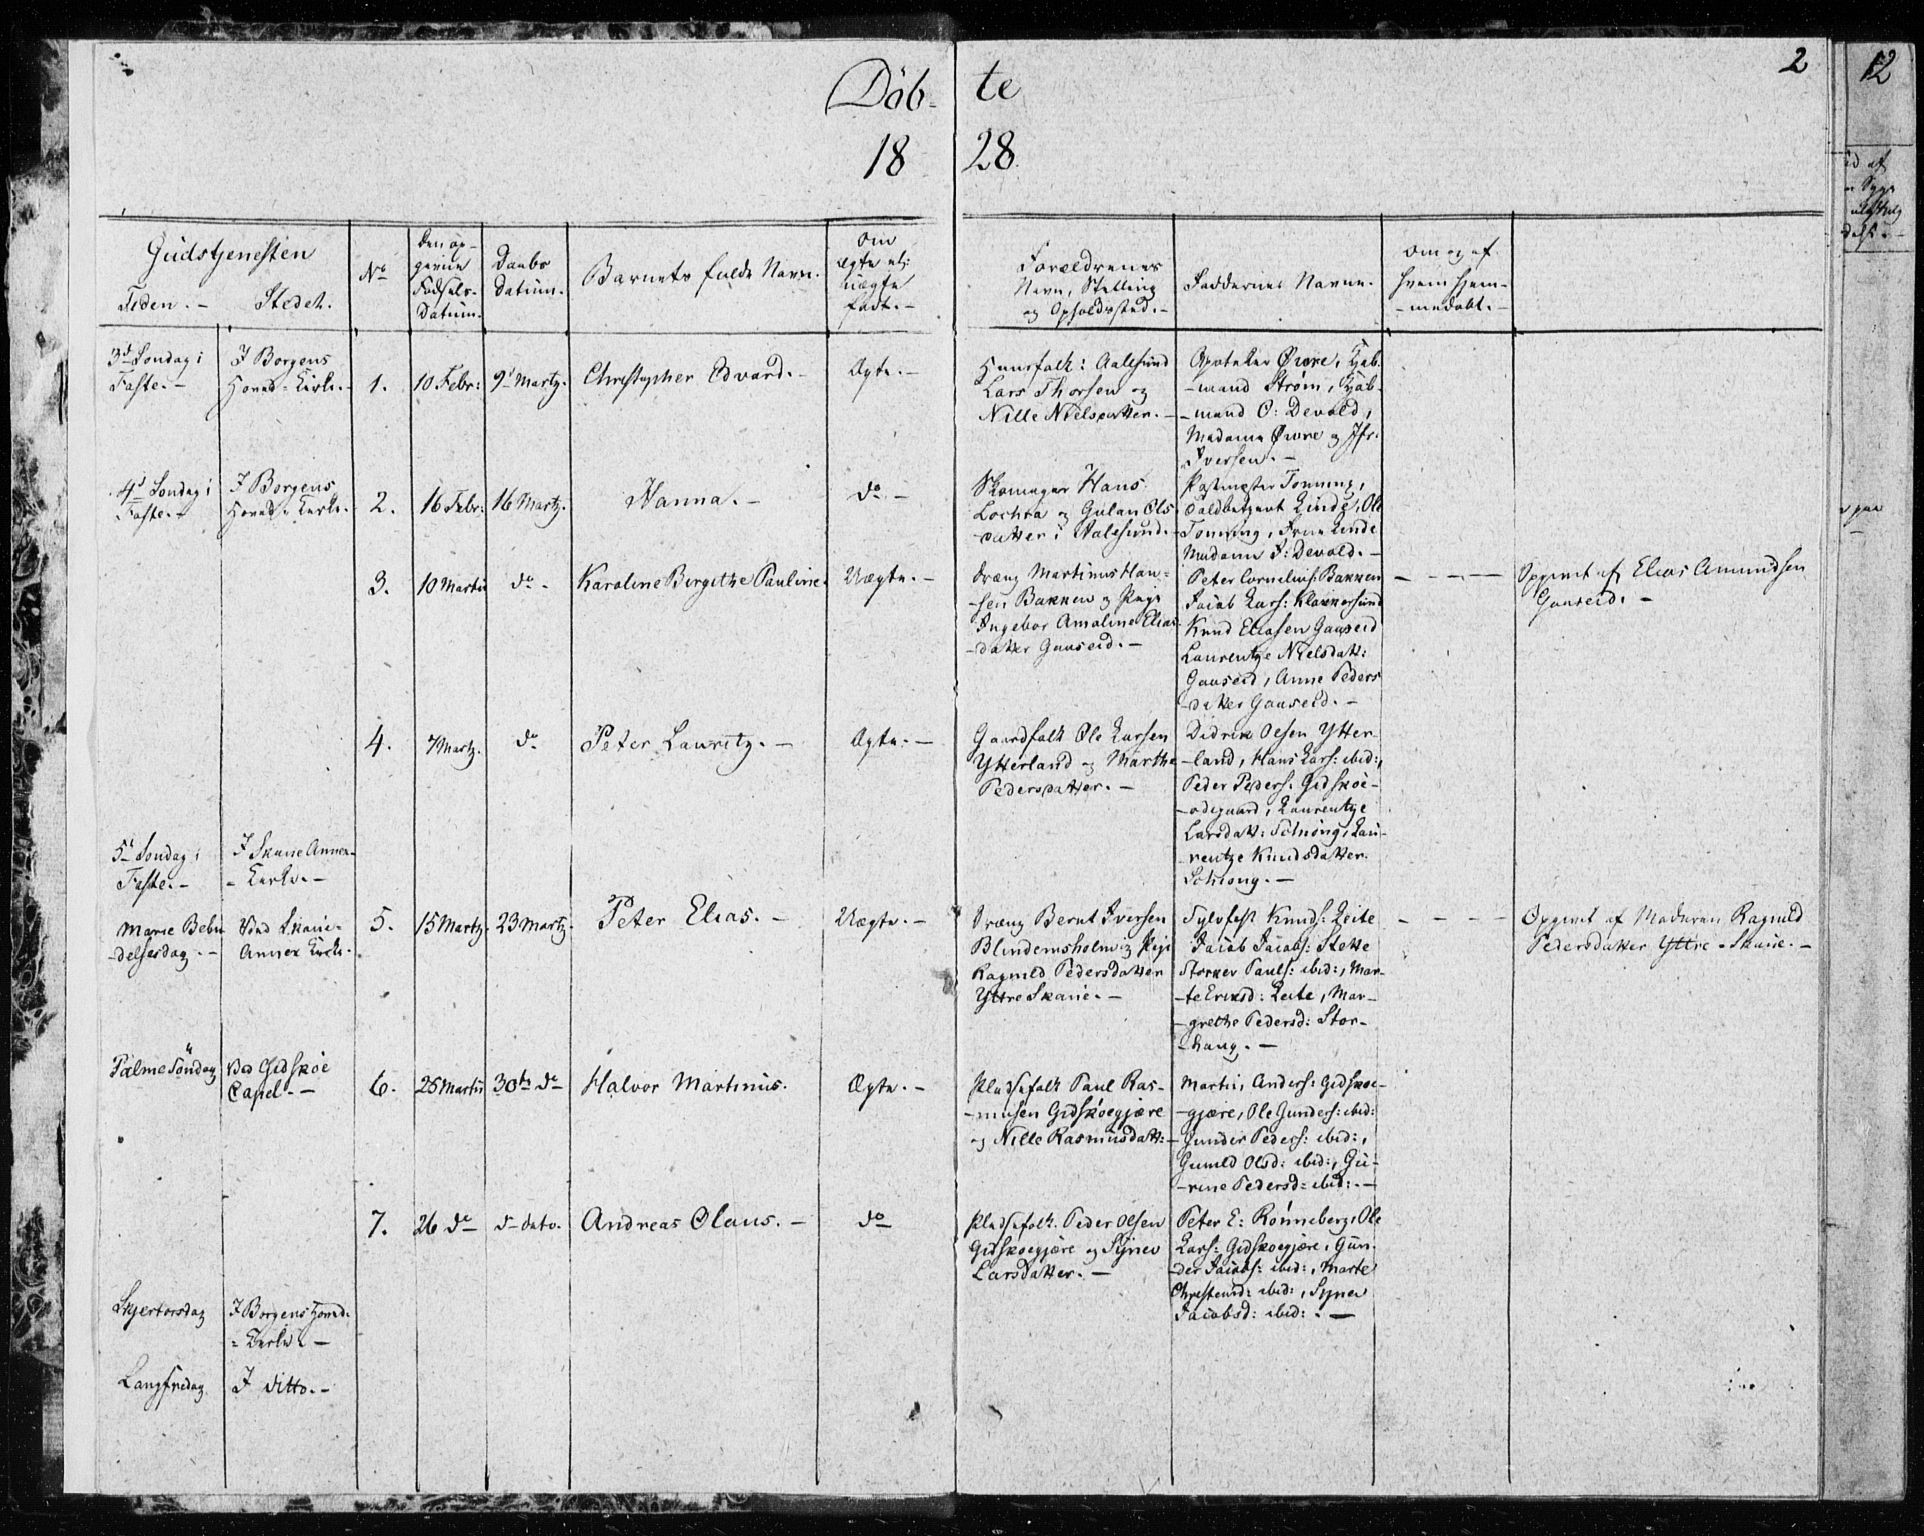 Döb-te
1828.
2
12
Gudstjenesten
Tiden. - Stedet.
No
Den op-
givne
Födsels-
Datum.
Daabs
Datum.
Barnets fulde Navn.
Om
ægte el:
uægte
født. -
Forældrenes
Navn, Stilling
og Opholdssted. -
Faddernes Navne. -
Om og af
hvem hjem-
-medøbt. -
3d Søndag i
Faste. -
I Borgens
Hoved-Kirke. -
1.
10 Febr:
9d Martz.
Christopher Edvard. -
Ægte. -
Huusfolk: Aalesund
Lars Thorsen og
Nille Nielsdatter. -
Apoteker Øwre, Kjøb-
-mand Strøm, Kjøb-
-mand O: Devold,
Madame Øwre og Jfr.
Iversen. -
4d Søndag i
Faste. -
I Borgens
Hoved-Kirke. -
2.
16 Febr:
16 Martz.
Hanna. -
do -
Skomager Hans
Lochra og Gulan Ols-
-datter i Aalesund. -
Postmester Tonning,
Toldbetjent Linde, Ole
Tonning, Frue Linde
Madame J: Devold. -
3.
10 Martii
do -
Karoline Birgithe Pauline.
Uægte. -
Dreng Martinus Han-
-sen Bakken og Pige
Ingebor Amaline Elias-
-datter Gaaseid. -
Peter Cornelius: Bakken
Jacob Lars: Klokkersund
Knud Eliasen Gaaseid
Laurentze Nielsdatt:
Gaaseid, Anne Peders
-datter Gaaseid. -
Opgivet af Elias Amundsen
Gaaseid. -
4.
7 Martz.
do
Peter Lauritz. -
Ægte. -
Gaardfolk Ole Larsen
Ytterland og Marthe
Pedersdatter. -
Didrik Olsen Ytter-
-land, Hans Lars: ibid:,
Peder Peders: Gidskoe-
-ødegaard, Laurentze
Larsdatt: Schiong, Lau-
-rentze Knudsdatter
Schiong. -
5d Søndag i
Faste. -
I Skaue Annex-
- Kirke. -
Marie Bebu-
-delsesdag. -
Ved Skaue-
Annex Kirke. -
5.
15 Martz.
23 Martz.
Peter Elias. -
Uægte. -
Dreng Bernt Iversen
Blindemsholm og Pige
Ragnild Pedersdatter
Yttre Skaue. -
Sylfest Knuds: Leite
Jacob Jacobs: Stette
Storker Pauls: ibid:, Mar-
-te Eriksd: Leite, Mar-
-grethe Pedersd: Stor-
-haug. -
Opgivet af Moderen Ragnild
Pedersdatter Yttre-Skaue. -
Palme Söndag
Ved Gidskoe
Capel. -
6.
25 Martii
30te do
Halvor Martinus.
Ægte. -
Pladsefolk Paul Ras-
-musen Gidskoegjære
og Nille Rasmusdatt: -
Marti, Anders: Gidskoe-
-gjære, Ole Gunders: ibid:
Gunder Peders: ibid:,
Gunild Olsd: ibid:, Gu-
-rine Pedersd: ibid: -
7.
26 do
d- dato.
Andreas Olaus. -
do
Pladsefolk Peder Olsen
Gidskoegjære og Synev
Larsdatter. -
Peter E: Rönneberg, Ole
Lars: Gidskoegjære, Gun-
-der Jacobs: ibid:, Marte
Christensd: ibid:, Synev
Jacobsd: ibid: . -
Skjertorsdag
I Borgens Hoved-
- Kirke. -
Langfredag
I ditto. -